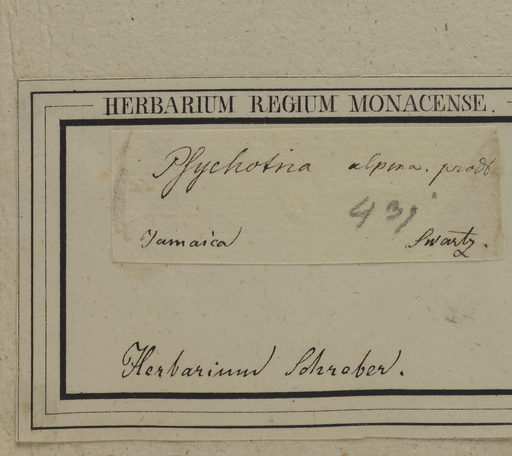 HERBARIUM REGIUM MONACENSE.
Psychotria alpina. prodr
431
Jamaica Swartz.
Herbarium Schreber.